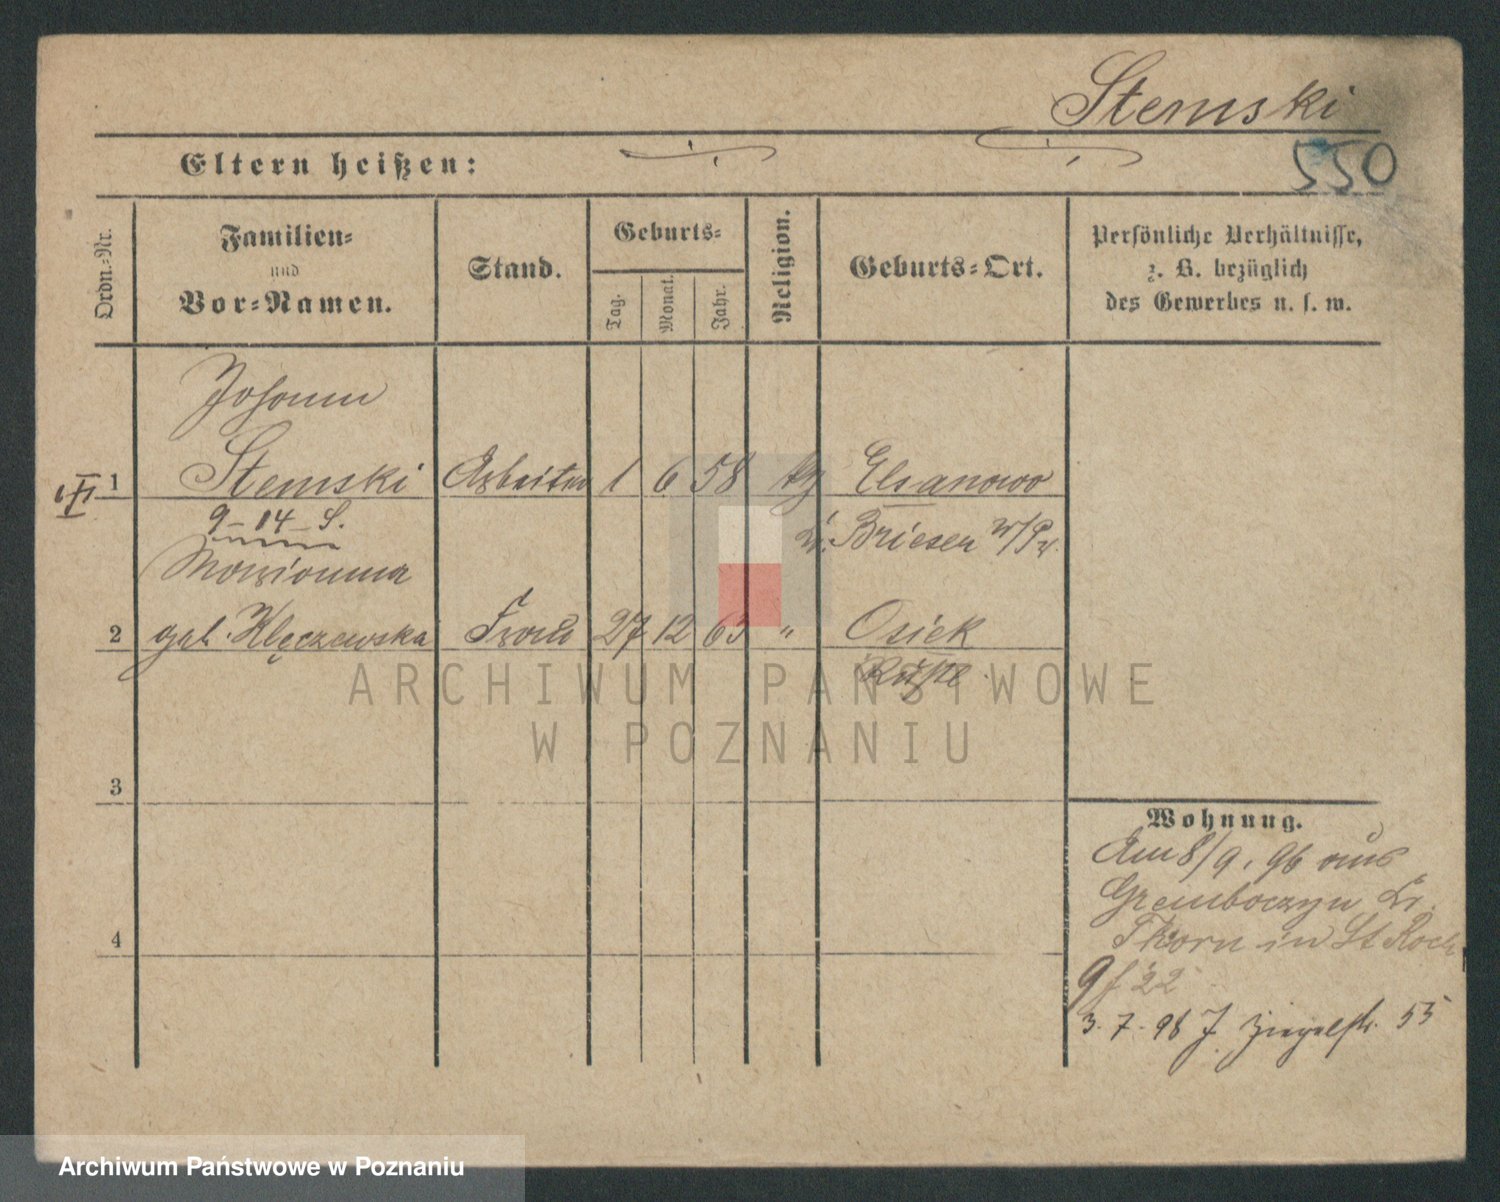 Stemski
550
Eltern heißen:
Ordn.-Nr.
Familien-
und
Vor-Namen.
Stand.
Geburts-
Tag.
Monat.
Jahr.
Religion.
Geburts-Ort.
Persönliche Verhältnisse,
z. B. bezüglich
des Gewerbes u. s. w.
Johann
1 Stemski Arbeiter 1 6 58 Elsanowo
9-14-S. Kr. Briesen W/Pr.
Marianna
2 geb. Klęczewska Frau 27 12 63 " Osiek
3
4
Wohnung.
Am 8/9. 96 aus
Gremboczyn Kr.
Thorn in St Roch
9 f 22
3. 7. 98 J. Ziegelstr. 55
ARCHIWUM PAŃSTWOWE
W POZNANIU
Archiwum Państwowe w Poznaniu